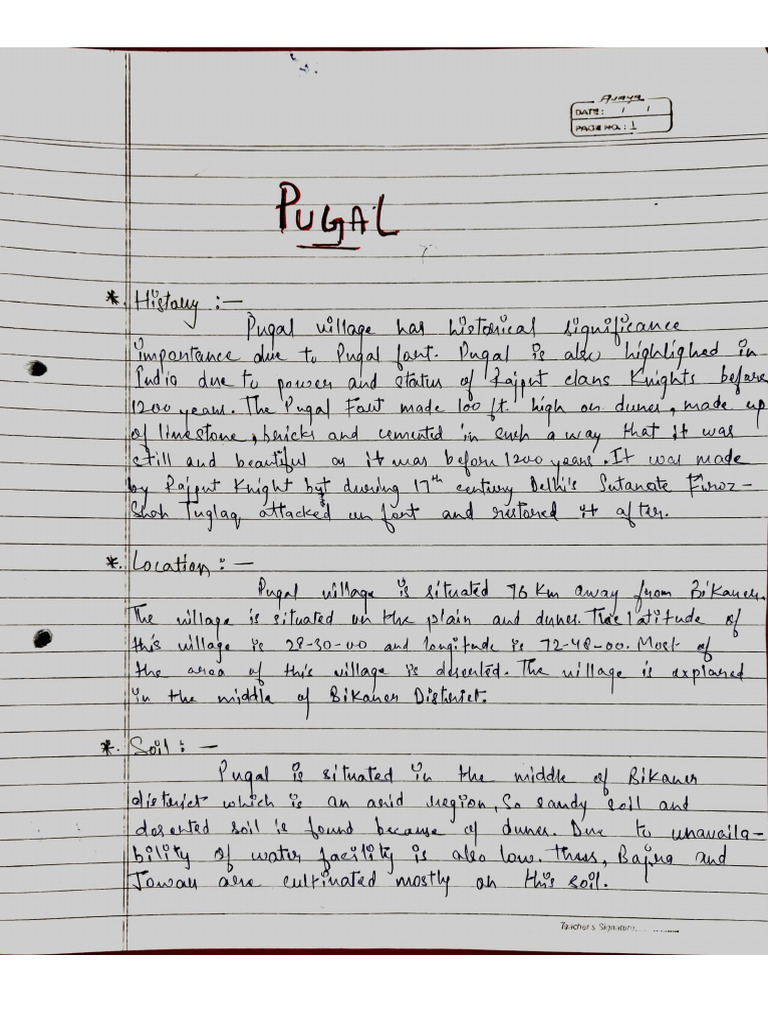 Ajaya
DATE: / /
PAGE NO.: 1
PUGAL
*. History :—
Pugal village has historical significance
importance due to Pugal fort. Pugal is also highlighed in
India due to power and status of Rajput clans Knights before
1200 years. The Pugal Fort made 100 ft. high on dunes, made up
of limestone, bricks and cemented in such a way that it was
still and beautiful as it was before 1200 years. It was made
by Rajput Knight but during 17th century Delhi's Sutanate Firoz-
Shah Tuglaq attacked on fort and restored it after.
*. Location :—
Pugal village is situated 76 Km away from Bikaner.
The village is situated on the plain and dunes. The latitude of
this village is 28-30-00 and longitude is 72-48-00. Most of
the area of this village is deserted. The village is explored
in the middle of Bikaner District.
*. Soil :—
Pugal is situated in the middle of Bikaner
district which is an arid region, So sandy soil and
deserted soil is found because of dunes. Due to unavaila-
bility of water facility is also low. Thus, Bajra and
Jowar are cultivated mostly on this soil.
Teacher's Signature..............